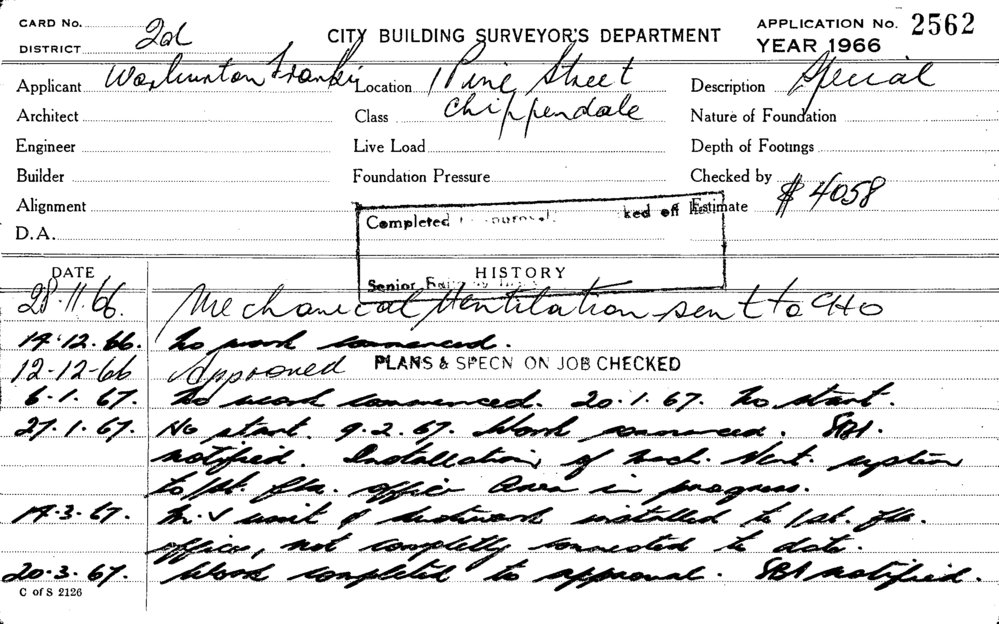 CARD No.
DISTRICT 2d
CITY BUILDING SURVEYOR'S DEPARTMENT
APPLICATION No. 2562
YEAR 1966
Applicant Warburton Franki Location 1 Pine Street Description Special
Architect Class Chippendale Nature of Foundation
Engineer Live Load Depth of Footings
Builder Foundation Pressure Checked by
Alignment Estimate $4058
D.A.
Completed to approval. ked off
Senior
DATE HISTORY
28.11.66. Mechanical Ventilation sent to CHO
14.12.66. No work commenced.
12-12-66 Approved PLANS & SPECN ON JOB CHECKED
6.1.67. No work commenced. 20.1.67. No start.
27.1.67. No start. 9.2.67. Work commenced. SBI.
notified. Installation of Mech. Vent. system
to 1st. flr. office area in progress.
14.3.67. M.V unit & ductwork installed to 1st. flr.
office, not completly connected to date.
20.3.67. Work completed to approval. SBI notified.
C of S 2126